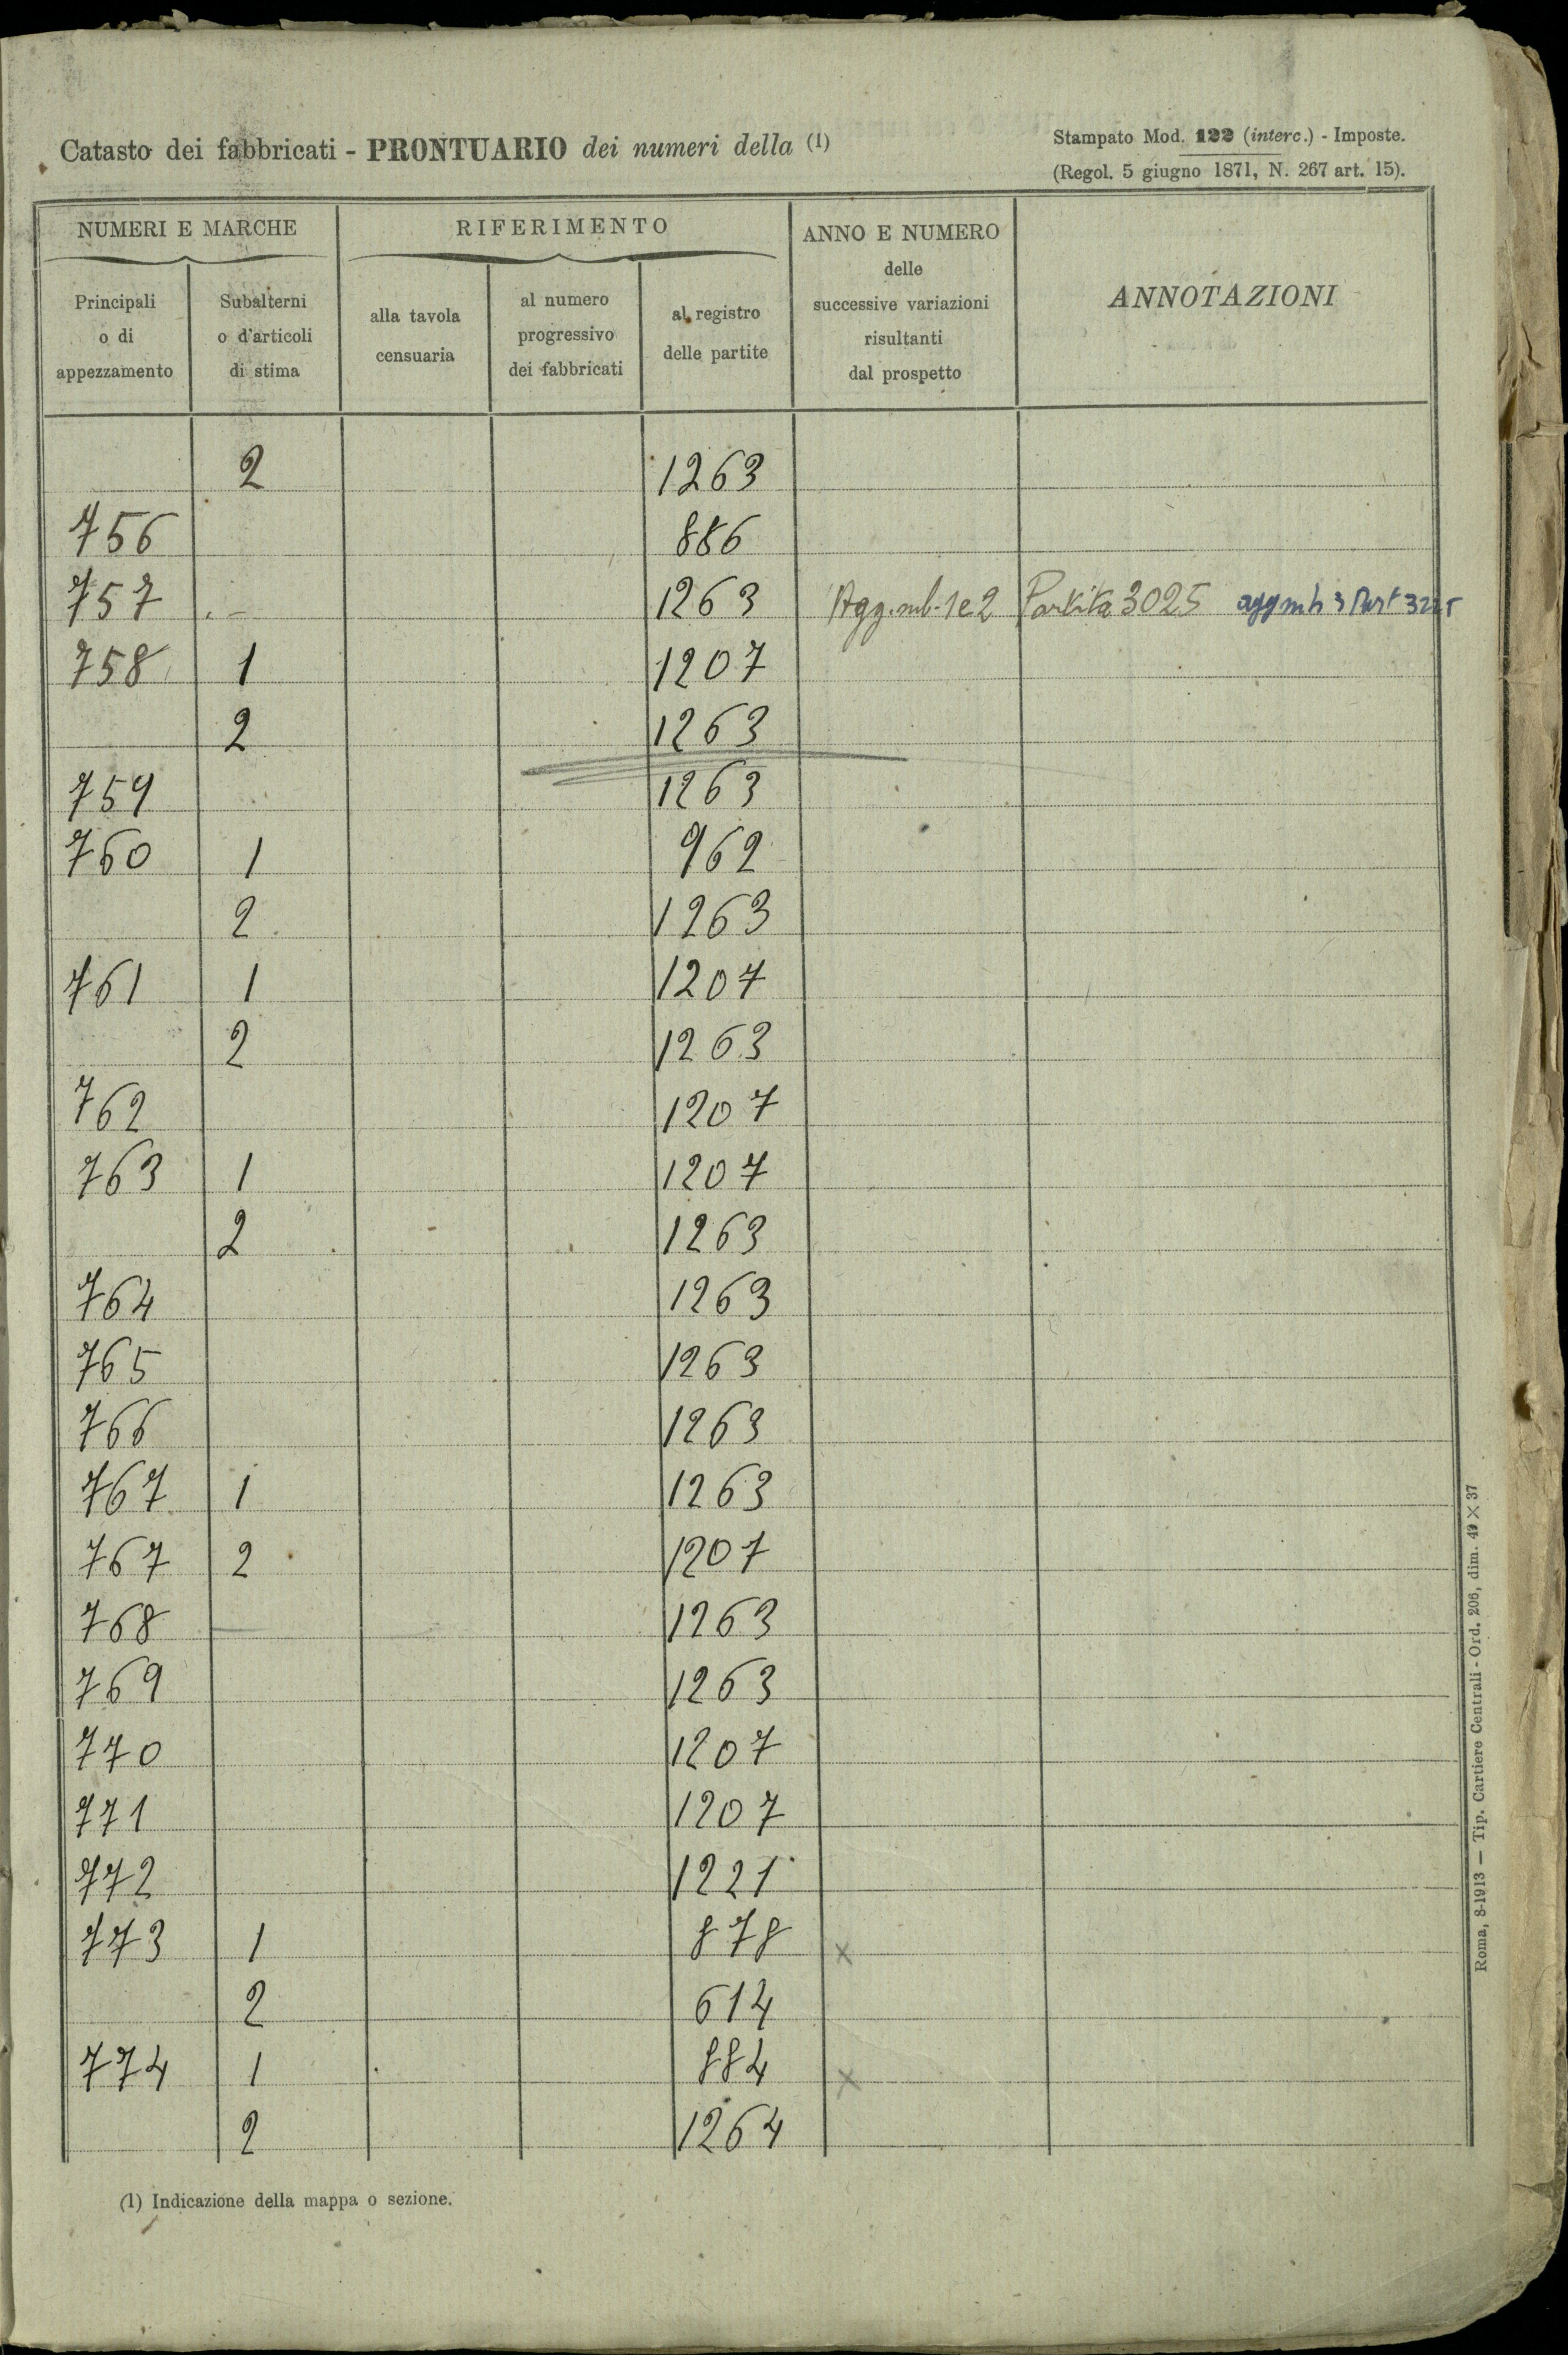 Catasto dei fabbricati - PRONTUARIO dei numeri della (1)
Stampato Mod. 122 (interc.) - Imposte.
(Regol. 5 giugno 1871, N. 267 art. 15).
NUMERI E MARCHE
RIFERIMENTO
ANNO E NUMERO
delle
successive variazioni
risultanti
dal prospetto
ANNOTAZIONI
Principali
o di
appezzamento
Subalterni
o d'articoli
di stima
alla tavola
censuaria
al numero
progressivo
dei fabbricati
al registro
delle partite
2 1263
756 886
757 1263 Agg. sub. 1 e 2 Partita 3025
758 1 1207
2 1263
759 1263
760 1 962
2 1263
761 1 1207
2 1263
762 1207
763 1 1207
2 1263
764 1263
765 1263
766 1263
767 1 1263
767 2 1207
768 1263
769 1263
770 1207
771 1207
772 1221
773 1 878 x
2 614
774 1 884 x
2 1264
(1) Indicazione della mappa o sezione.
Roma, 8-1913 — Tip. Cartiere Centrali - Ord. 206, dim. 49 × 37